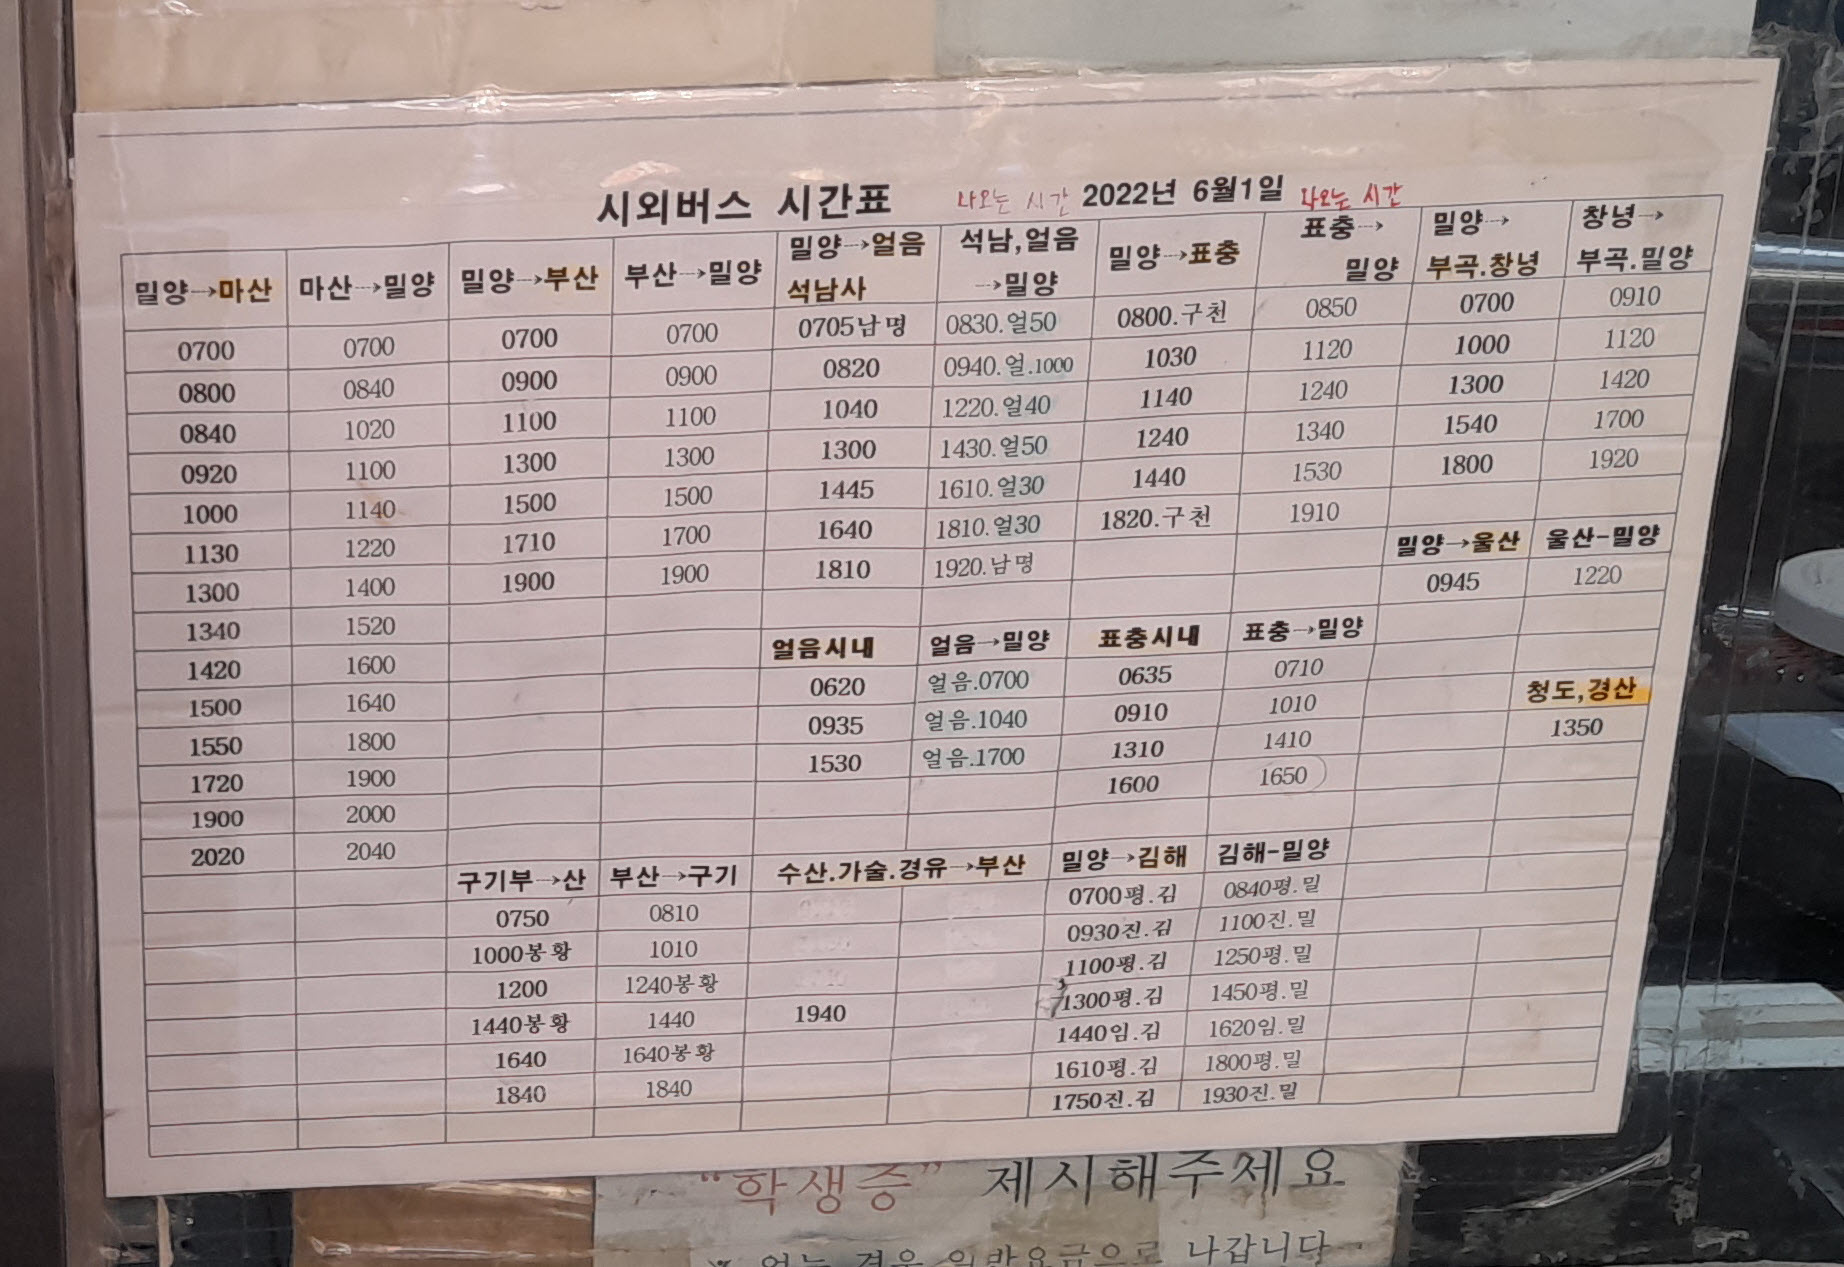 시외버스 시간표 나오는 시간 2022년 6월1일 나오는 시간
밀양→마산 마산→밀양 밀양→부산 부산→밀양 밀양→얼음 석남사 석남,얼음 →밀양 밀양→표충 표충→ 밀양 밀양→ 부곡.창녕 창녕→ 부곡.밀양
0700 0700 0700 0700 0705남명 0830.얼50 0800.구천 0850 0700 0910
0800 0840 0900 0900 0820 0940.얼.1000 1030 1120 1000 1120
0840 1020 1100 1100 1040 1220.얼40 1140 1240 1300 1420
0920 1100 1300 1300 1300 1430.얼50 1240 1340 1540 1700
1000 1140 1500 1500 1445 1610.얼30 1440 1530 1800 1920
1130 1220 1710 1700 1640 1810.얼30 1820.구천 1910
1300 1400 1900 1900 1810 1920.남명 밀양→울산 울산-밀양
1340 1520 0945 1220
1420 1600 얼음시내 얼음→밀양 표충시내 표충→밀양
1500 1640 0620 얼음.0700 0635 0710
1550 1800 0935 얼음.1040 0910 1010 청도,경산
1720 1900 1530 얼음.1700 1310 1410 1350
1900 2000 1600 1650
2020 2040
구기부→산 부산→구기 수산.가술.경유→부산 밀양→김해 김해-밀양
0750 0810 0700평.김 0840평.밀
1000봉황 1010 0930진.김 1100진.밀
1200 1240봉황 1100평.김 1250평.밀
1440봉황 1440 1940 1300평.김 1450평.밀
1640 1640봉황 1440임.김 1620임.밀
1840 1840 1610평.김 1800평.밀
1750진.김 1930진.밀
"학생증" 제시해주세요
※ 없는 경우 일반요금으로 나갑니다